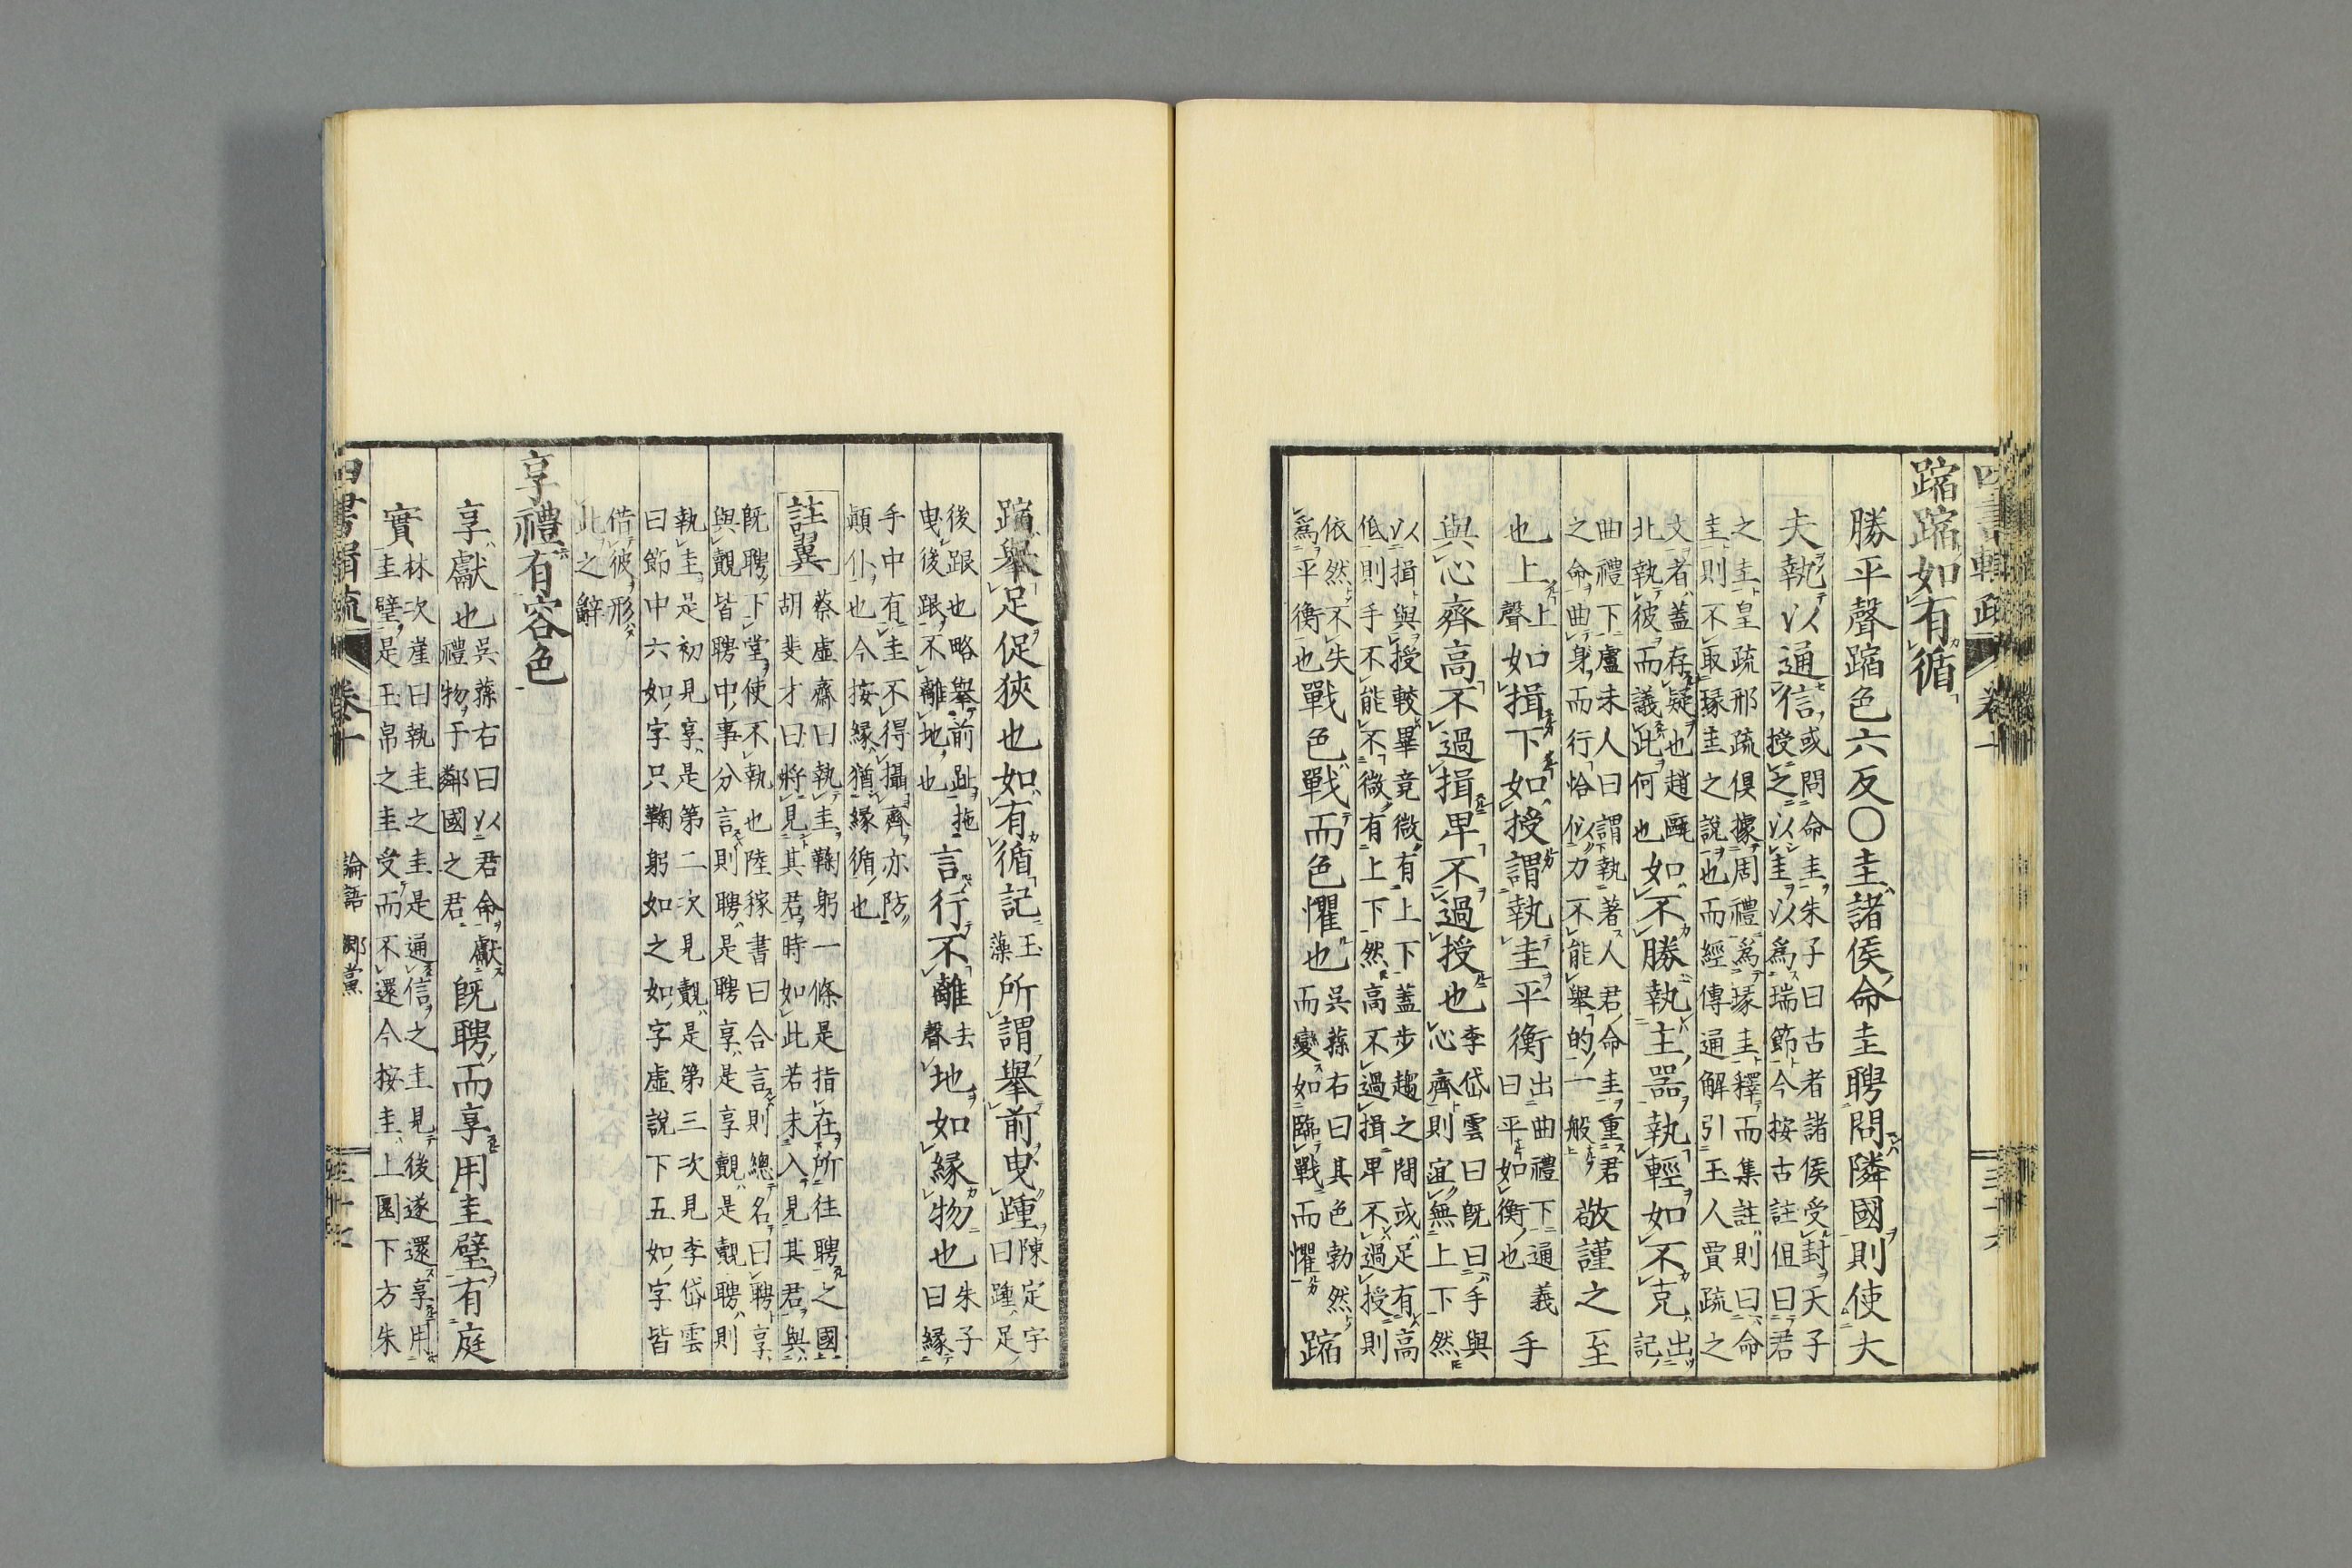 蹜蹜如有循
勝平聲蹜色六反○圭諸侯命圭聘問隣國則使大
夫執以通信或問命圭朱子曰古者諸侯受封天子
授之以圭以爲瑞節今按古註但曰君
之圭皇疏邢疏俱據周禮爲瑑圭釋而集註則曰命
圭則不取瑑圭之說也而經傳通解引玉人賈疏之
文者蓋存疑也趙
北執彼而議此何也如不勝執主器執輕如不克出
記
曲禮下盧未人曰謂執著人君命圭重君
之命曲身而行恰似力不能舉的一般敬謹之至
也上上如揖下如授謂執圭平衡出曲禮下通義
聲曰平如衡也手
與心齊高不過揖卑不過授也李岱雲曰既曰手與
心齊則宜無上下然
以揖與授較畢竟微有上下蓋步趨之間或足有高
低則手不能不微有上下然高不過揖卑不過授則
依然不失
爲平衡也戰色戰而色懼也吳蓀右曰其色勃然
而變如臨戰而懼蹜
蹜舉足促狹也如有循記玉
藻所謂舉前曳踵陳定宇
曰踵足
後跟也略舉前趾拖
曳後跟不離地也言行不離去
聲地如緣物也朱子
曰緣
手中有圭不得攝齊亦防
顚仆也今按緣猶緣循也
註翼蔡虛齋曰執圭鞠躬一條是指在所往聘之國
胡斐才曰將見其君時如此若未入見其君與
既聘下堂使不執也陸稼書曰合言則總名曰聘享
與覿皆聘中事分言則聘是聘享是享覿是覿聘則
執圭是初見享是第二次見覿是第三次見李岱雲
曰節中六如字只鞠躬如之如字虛說下五如字皆
借彼形
此之辭
享禮有容色
享獻也吳蓀右曰以君命獻
禮物于鄰國之君既聘而享用圭璧有庭
實林次崖曰執圭之圭是通信之圭見後遂還享用
圭璧是玉帛之圭受而不還今按圭上圓下方朱
四書輯疏 卷十 論語 鄉黨